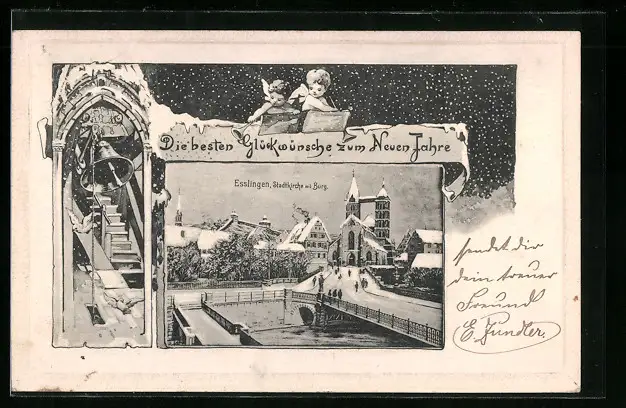 Die besten Glückwünsche zum Neuen Jahre
Esslingen, Stadtkirche mit Burg.
sendet dir
dein treuer
Freund
E. Fundler.